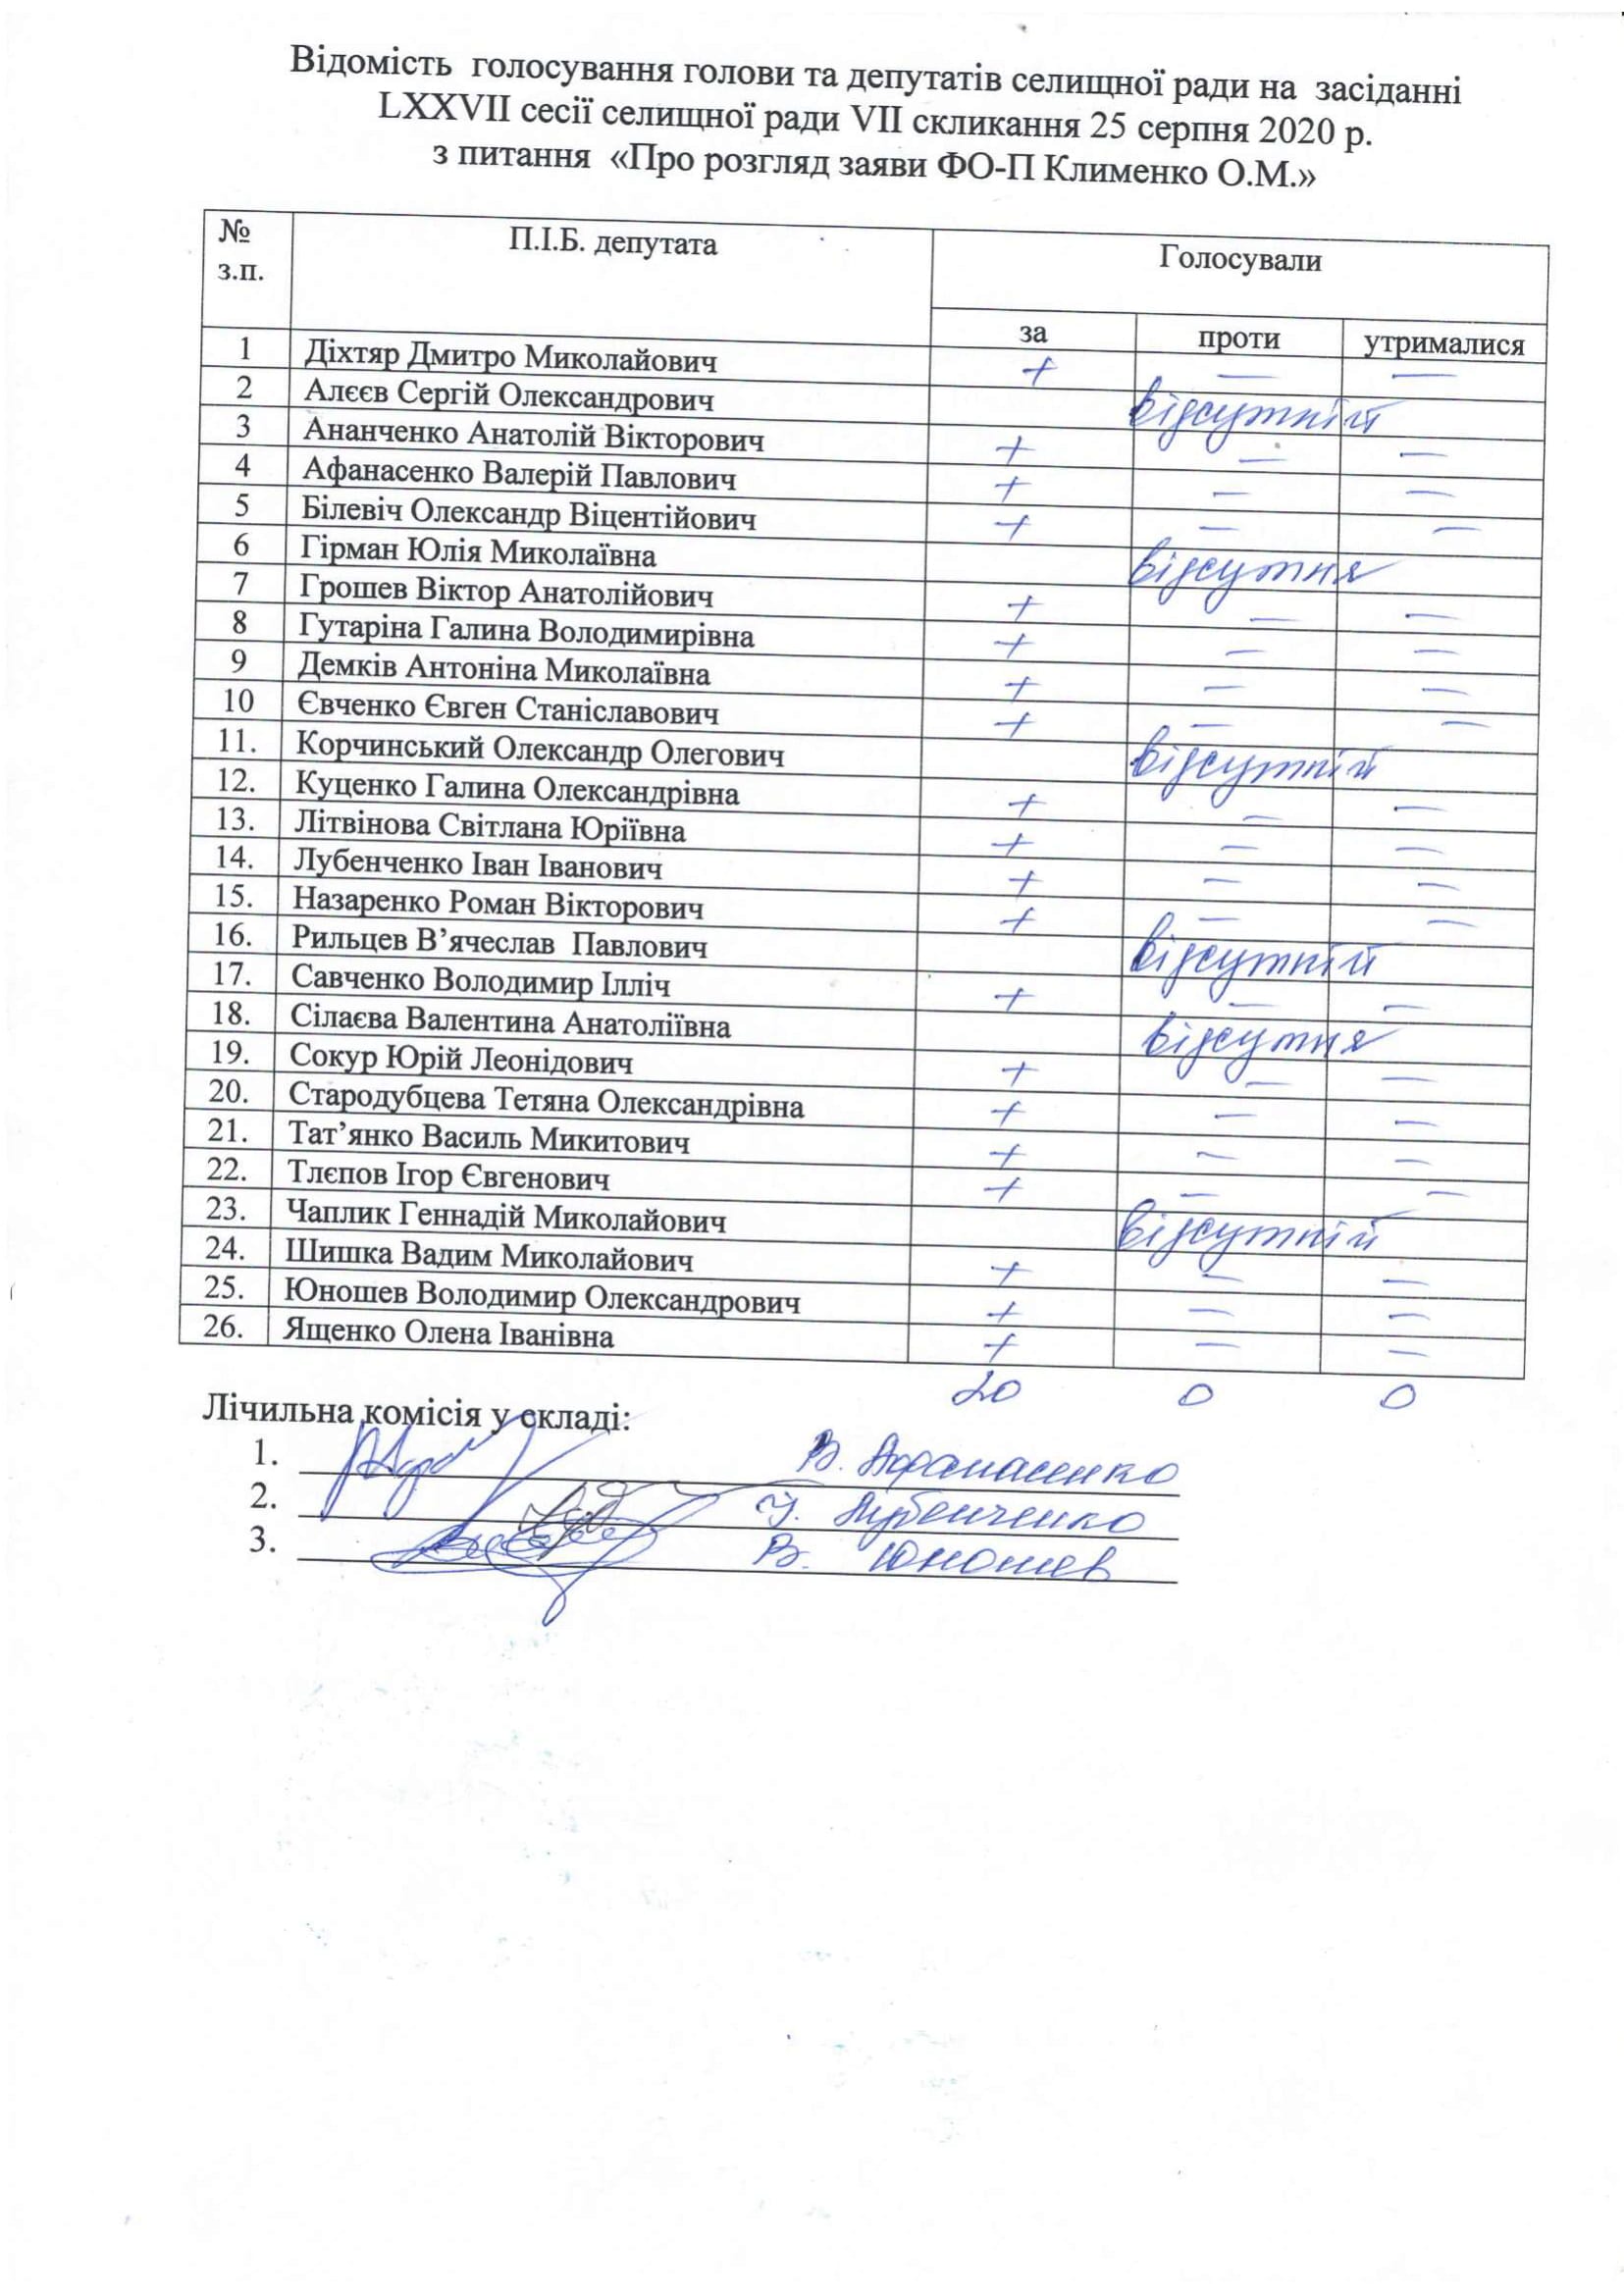 Відомість голосування голови та депутатів селищної ради на засіданні
LXXVII сесії селищної ради VII скликання 25 серпня 2020 р.
з питання «Про розгляд заяви ФО-П Клименко О.М.»
№ з.п. П.І.Б. депутата Голосували
за проти утрималися
1 Діхтяр Дмитро Миколайович + — —
2 Алєєв Сергій Олександрович відсутній
3 Ананченко Анатолій Вікторович + — —
4 Афанасенко Валерій Павлович + — —
5 Білевіч Олександр Віцентійович + — —
6 Гірман Юлія Миколаївна відсутня
7 Грошев Віктор Анатолійович + — —
8 Гутаріна Галина Володимирівна + — —
9 Демків Антоніна Миколаївна + — —
10 Євченко Євген Станіславович + — —
11. Корчинський Олександр Олегович відсутній
12. Куценко Галина Олександрівна + — —
13. Літвінова Світлана Юріївна + — —
14. Лубенченко Іван Іванович + — —
15. Назаренко Роман Вікторович + — —
16. Рильцев В’ячеслав Павлович відсутній
17. Савченко Володимир Ілліч + — —
18. Сілаєва Валентина Анатоліївна відсутня
19. Сокур Юрій Леонідович + — —
20. Стародубцева Тетяна Олександрівна + — —
21. Тат’янко Василь Микитович + — —
22. Тлєпов Ігор Євгенович + — —
23. Чаплик Геннадій Миколайович відсутній
24. Шишка Вадим Миколайович + — —
25. Юношев Володимир Олександрович + — —
26. Ященко Олена Іванівна + — —
20 0 0
Лічильна комісія у складі:
1. В. Афанасенко
2. І. Лубенченко
3. В. Юношев